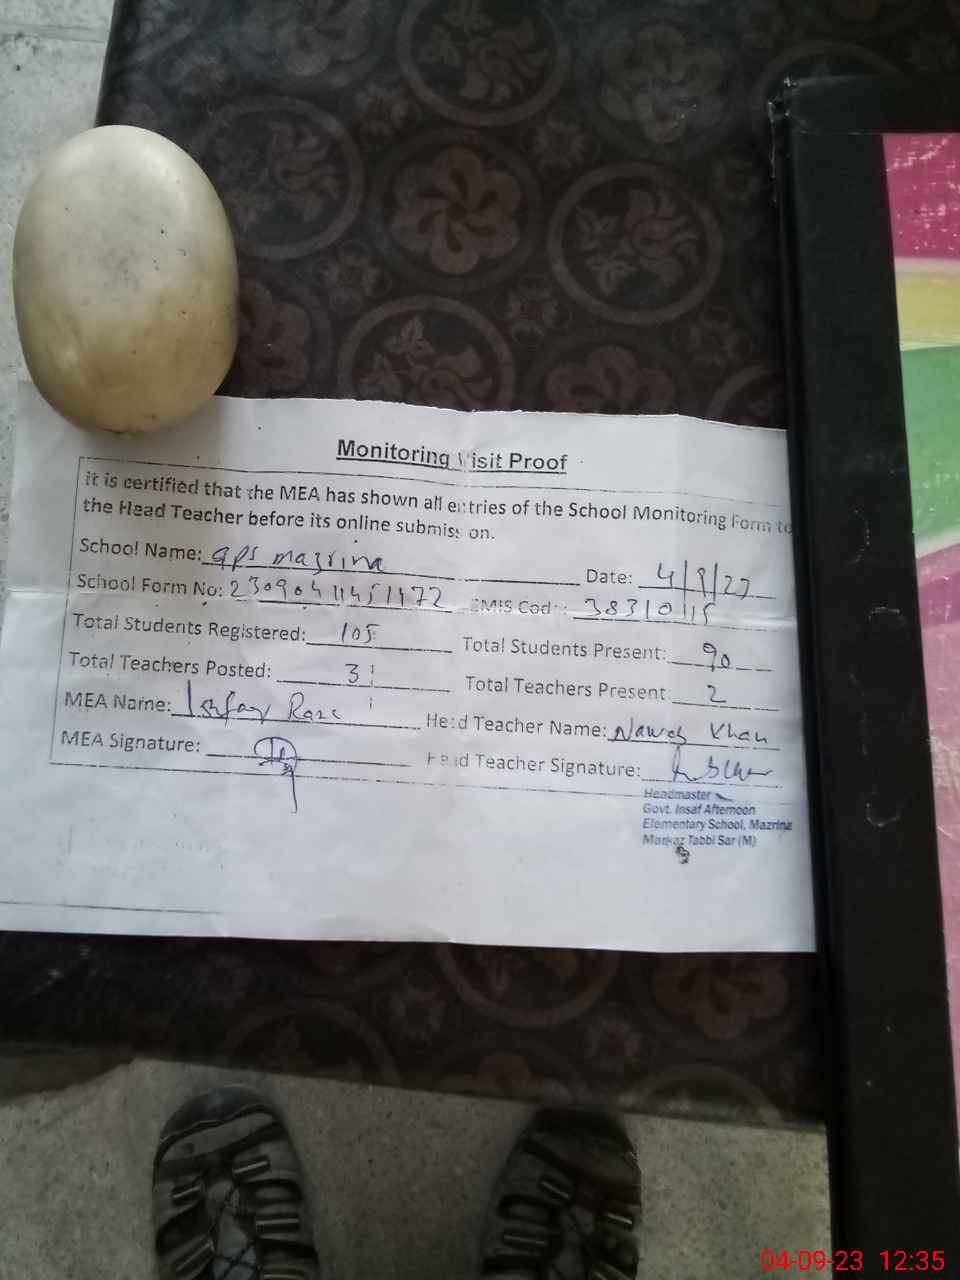 Monitoring Visit Proof
it is certified that the MEA has shown all entries of the School Monitoring Form to
the Head Teacher before its online submission.
School Name: GPS mazrina Date: 4/9/23
School Form No: 23090411451472 EMIS Code: 38310115
Total Students Registered: 105 Total Students Present: 90
Total Teachers Posted: 3 Total Teachers Present 2
MEA Name: Ishfaq Raza Head Teacher Name: Nawaz Khan
MEA Signature: Head Teacher Signature:
Headmaster
Govt. Insaf Afternoon
Elementary School, Mazrina
Markaz Tabbi Sar (M)
04-09-23 12:35